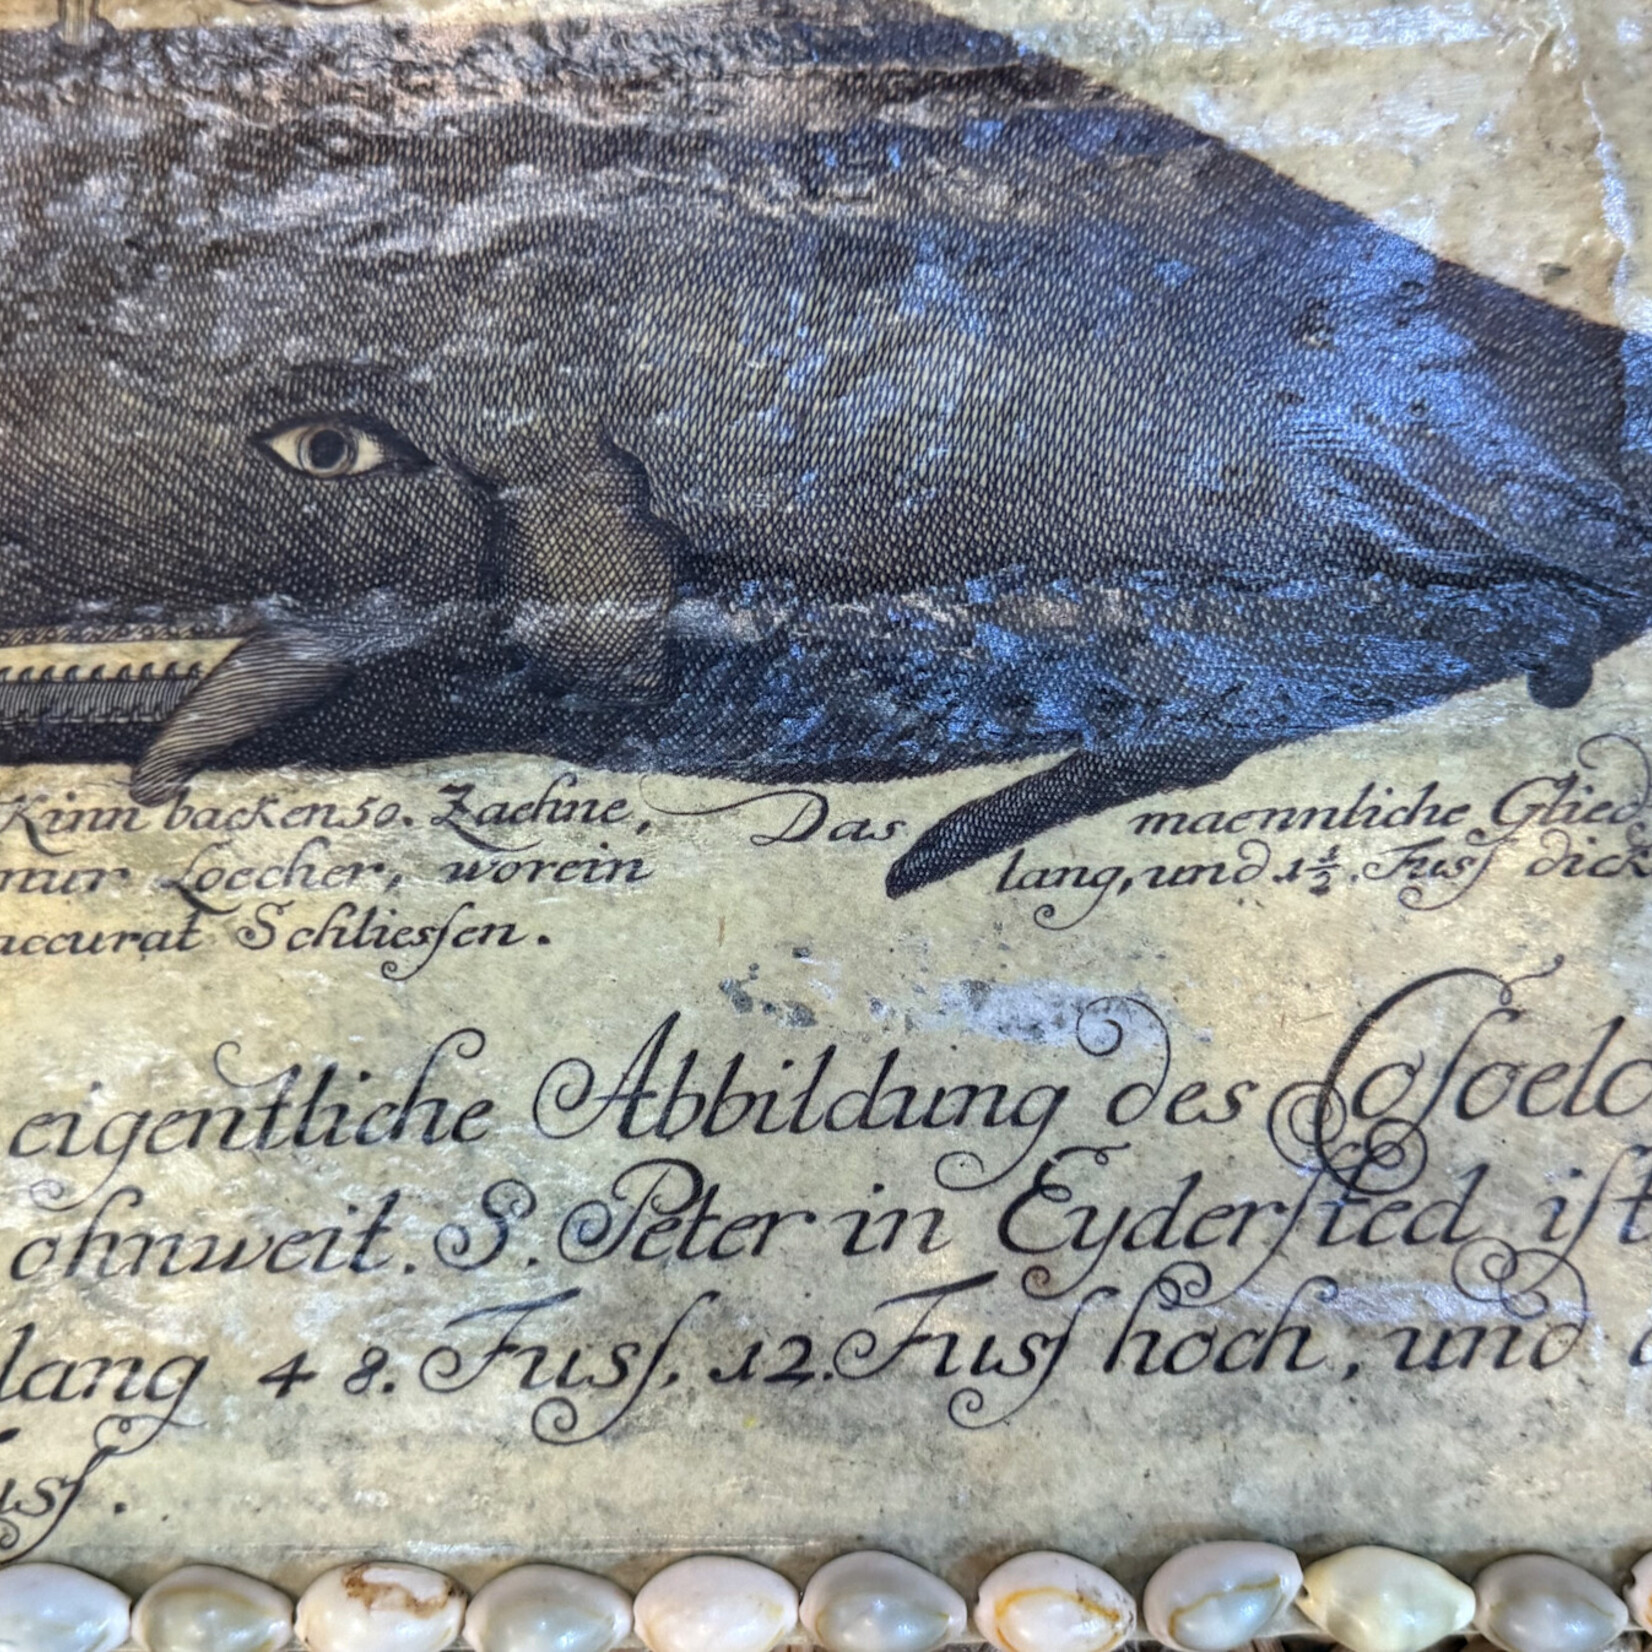 Kinn backen 50. Zaehne,
nur Loecher, worein
accurat Schliesſen.
Das maennliche Glied
lang, und 1½. Fusſ dick
eigentliche Abbildung des
ohnweit. S. Peter in Eyderſted iſt
lang 48. Fusſ, 12. Fusſ hoch, und